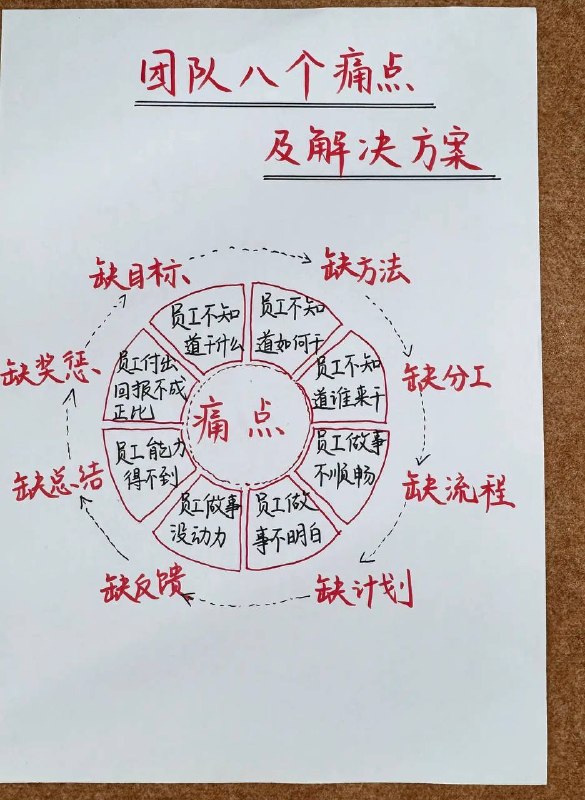 团队八个痛点
及解决方案
缺目标
缺方法
缺分工
缺流程
缺计划
缺反馈
缺总结
缺奖惩
员工不知
道干什么
员工不知
道如何干
员工不知
道谁来干
员工做事
不顺畅
员工做
事不明白
员工做事
没动力
员工能力
得不到
员工付出
回报不成
正比
痛点